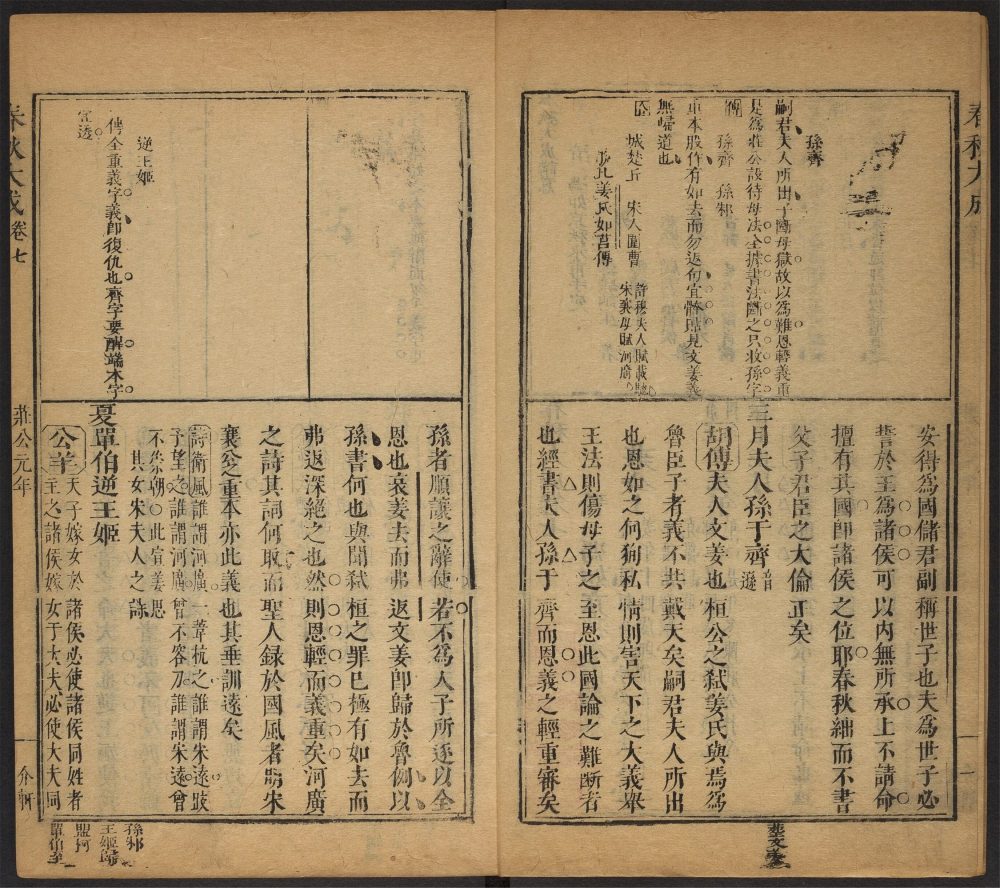 春秋大成
孫齊
嗣君夫人所出子斷母獄故以為難恩輕義重
是為莊公設待母法全據書法斷之只收孫字
孫齊 孫邾
重本股作有如去而勿返句宜幹出見文姜義
無歸道也
城楚丘 宋人圍曹
許穆夫人賦載馳
宋襄母賦河廣
孔姜氏如莒傳
安得為國儲君副稱世子也夫為世子必
誓於王為諸侯可以內無所承上不請命
擅有其國即諸侯之位耶春秋絀而不書
父子君臣之大倫正矣
三月夫人孫于齊
音遜
胡傳夫人文姜也桓公之弒姜氏與焉為
魯臣子者義不共戴天矣嗣君夫人所出
也恩如之何狥私情則害天下之大義舉
王法則傷母子之至恩此國論之難斷者
也經書夫人孫于齊而恩義之輕重審矣
逆王姬
傳全重義字義即復仇也齊字要醒端木字
宜透
孫者順讓之辭使若不為人子所逐以全
恩也哀姜去而弗返文姜即歸於魯例以
孫書何也與聞弒桓之罪已極有如去而
弗返深絕之也然則恩輕而義重矣河廣
之詩其詞何取而聖人錄於國風者明宋
襄公之重本亦此義也其垂訓遠矣
詩衛風誰謂河廣一葦杭之誰謂宋遠跂
予望之誰謂河廣曾不容刀誰謂宋遠曾
不崇朝○此宣姜思
其女宋夫人之詠
夏單伯逆王姬
公羊天子嫁女於諸侯必使諸侯同姓者
主之諸侯嫁女于大夫必使大夫同
春秋大成
卷七
莊公元年
孫邾
王姬歸
盟柯
單伯至